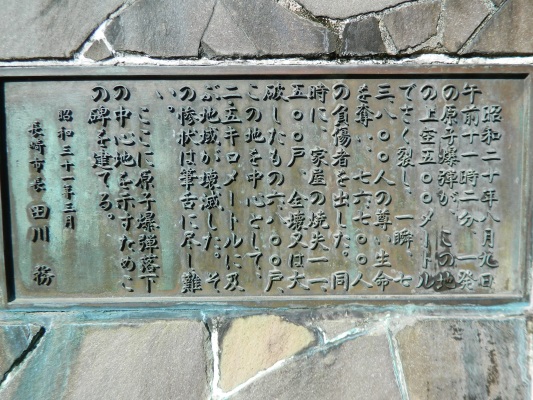 昭和二十年八月九日
午前十一時二分、一発
の原子爆弾が、この地
の上空五〇〇メートル
でさく裂し、一瞬、七
三、八〇〇人の尊い生命
を奪い、七六、七〇〇人
の負傷者を出した。同
時に、家屋の焼失一一、
五〇〇戸、全壊又は大
破したもの六、八〇〇戸、
この地を中心として、
二.五キロメートルに及
ぶ地域が壊滅した。そ
の惨状は筆舌に尽し難
い。
ここに原子爆弾落下
の中心地を示すためこ
の碑を建てる。
昭和三十一年三月
長崎市長 田川 務